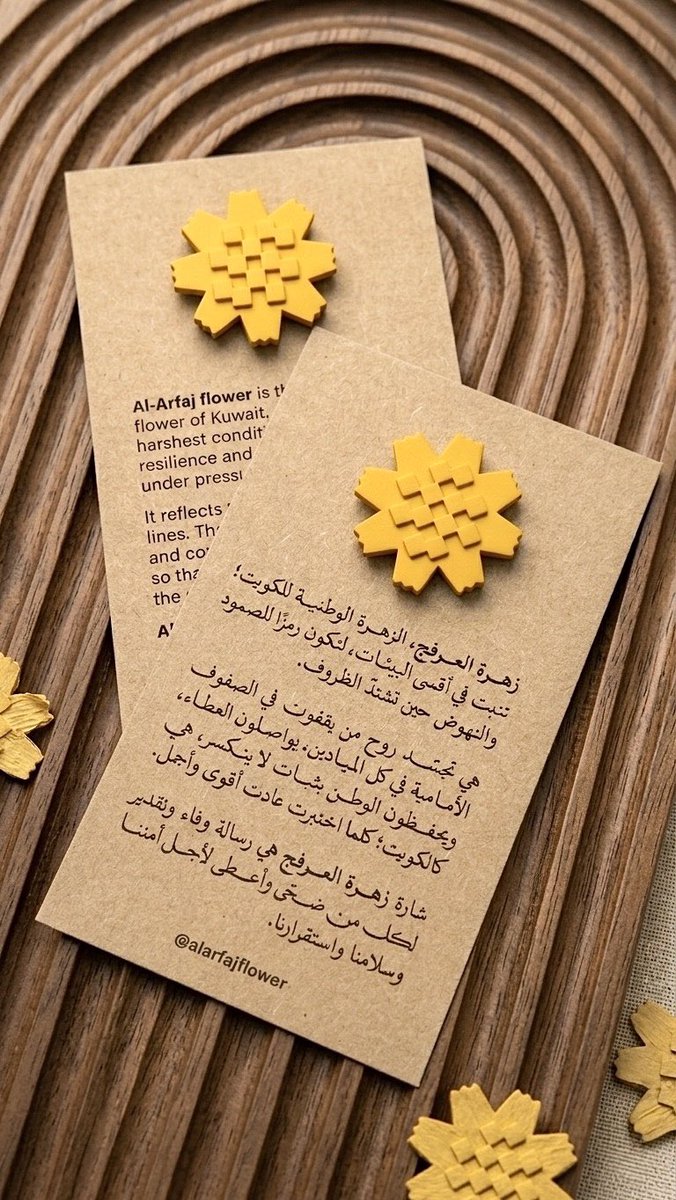 Al-Arfaj flower is th
flower of Kuwait.
harshest condit
resilience and
under press
It reflects
lines. Th
and co
so tha
the
زهرة العرفج، الزهرة الوطنية للكويت؛
تنبت في أقسى البيئات، لتكون رمزًا للصمود
والنهوض حين تشتدّ الظروف.
هي تجسّد روح من يقفون في الصفوف
الأمامية في كل الميادين. يواصلون العطاء،
ويحفظون الوطن بثبات لا ينكسر، هي
كالكويت؛ كلما اختبرت عادت أقوى وأجمل.
شارة زهرة العرفج هي رسالة وفاء وتقدير
لكل من ضحّى وأعطى لأجل أمننا
وسلامنا واستقرارنا.
@alarfajflower